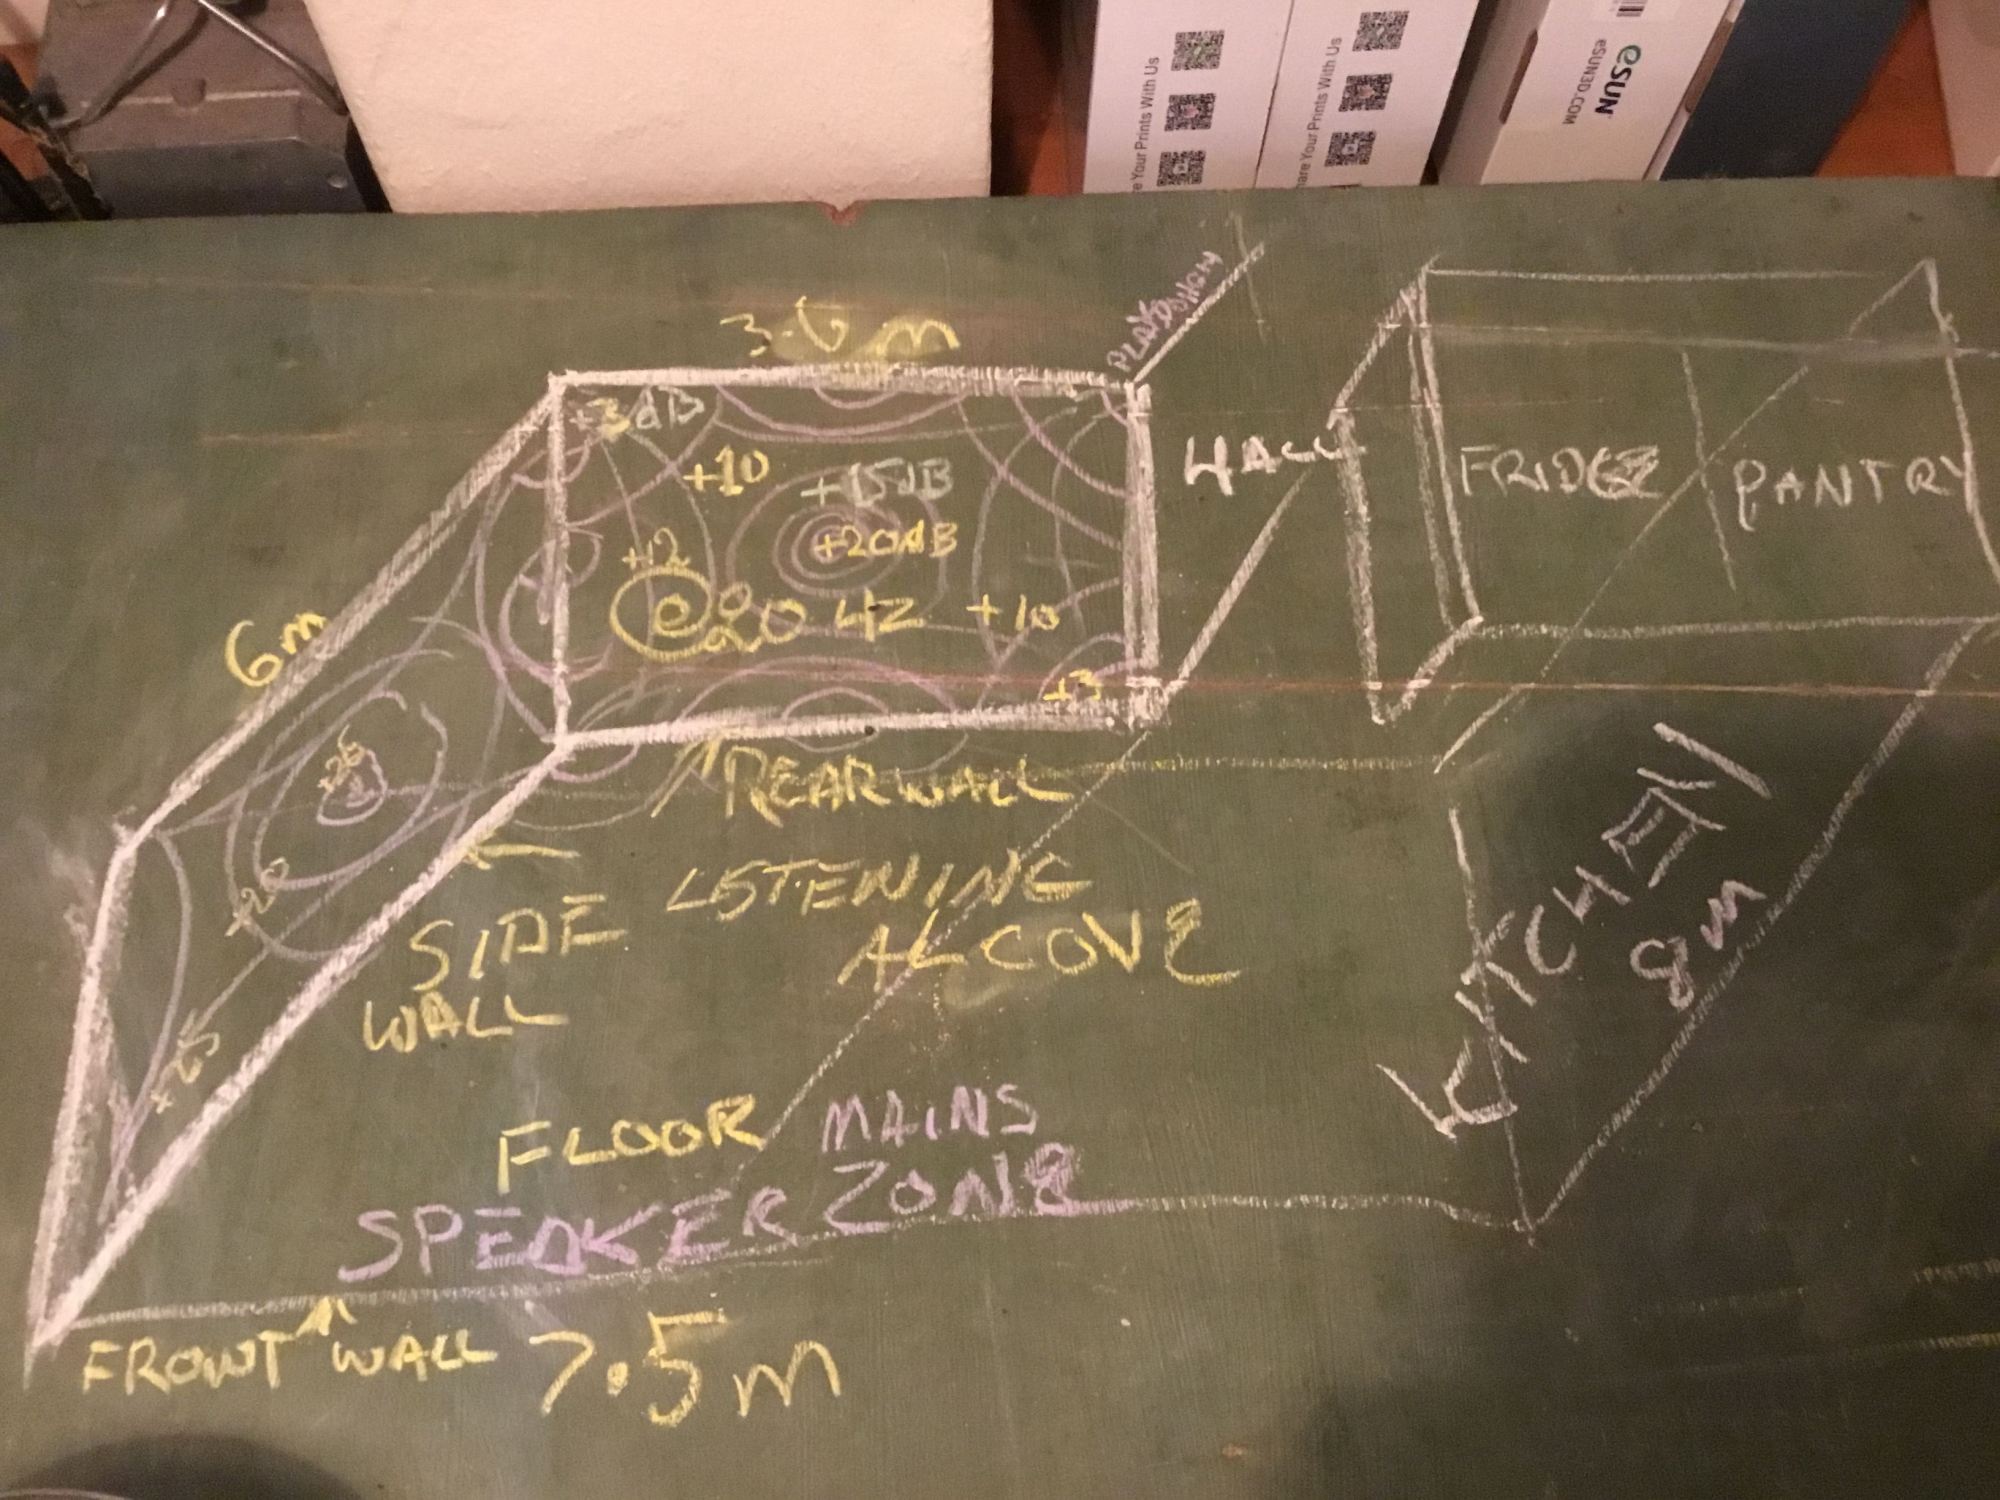 e Your Prints With Us
hare Your Prints With Us
eSUN
eSUN3D.COM
3.6 m
+3dB
+10
+15dB
+12
+20dB
20 HZ
+10
+3
HALL
FRIDGE
PANTRY
6m
REARWALL
LSTENING
ALCOVE
SIDE
WALL
+20
KITCHEN
8m
FLOOR
MAINS
SPEAKER ZONE
FRONT WALL
7.5m